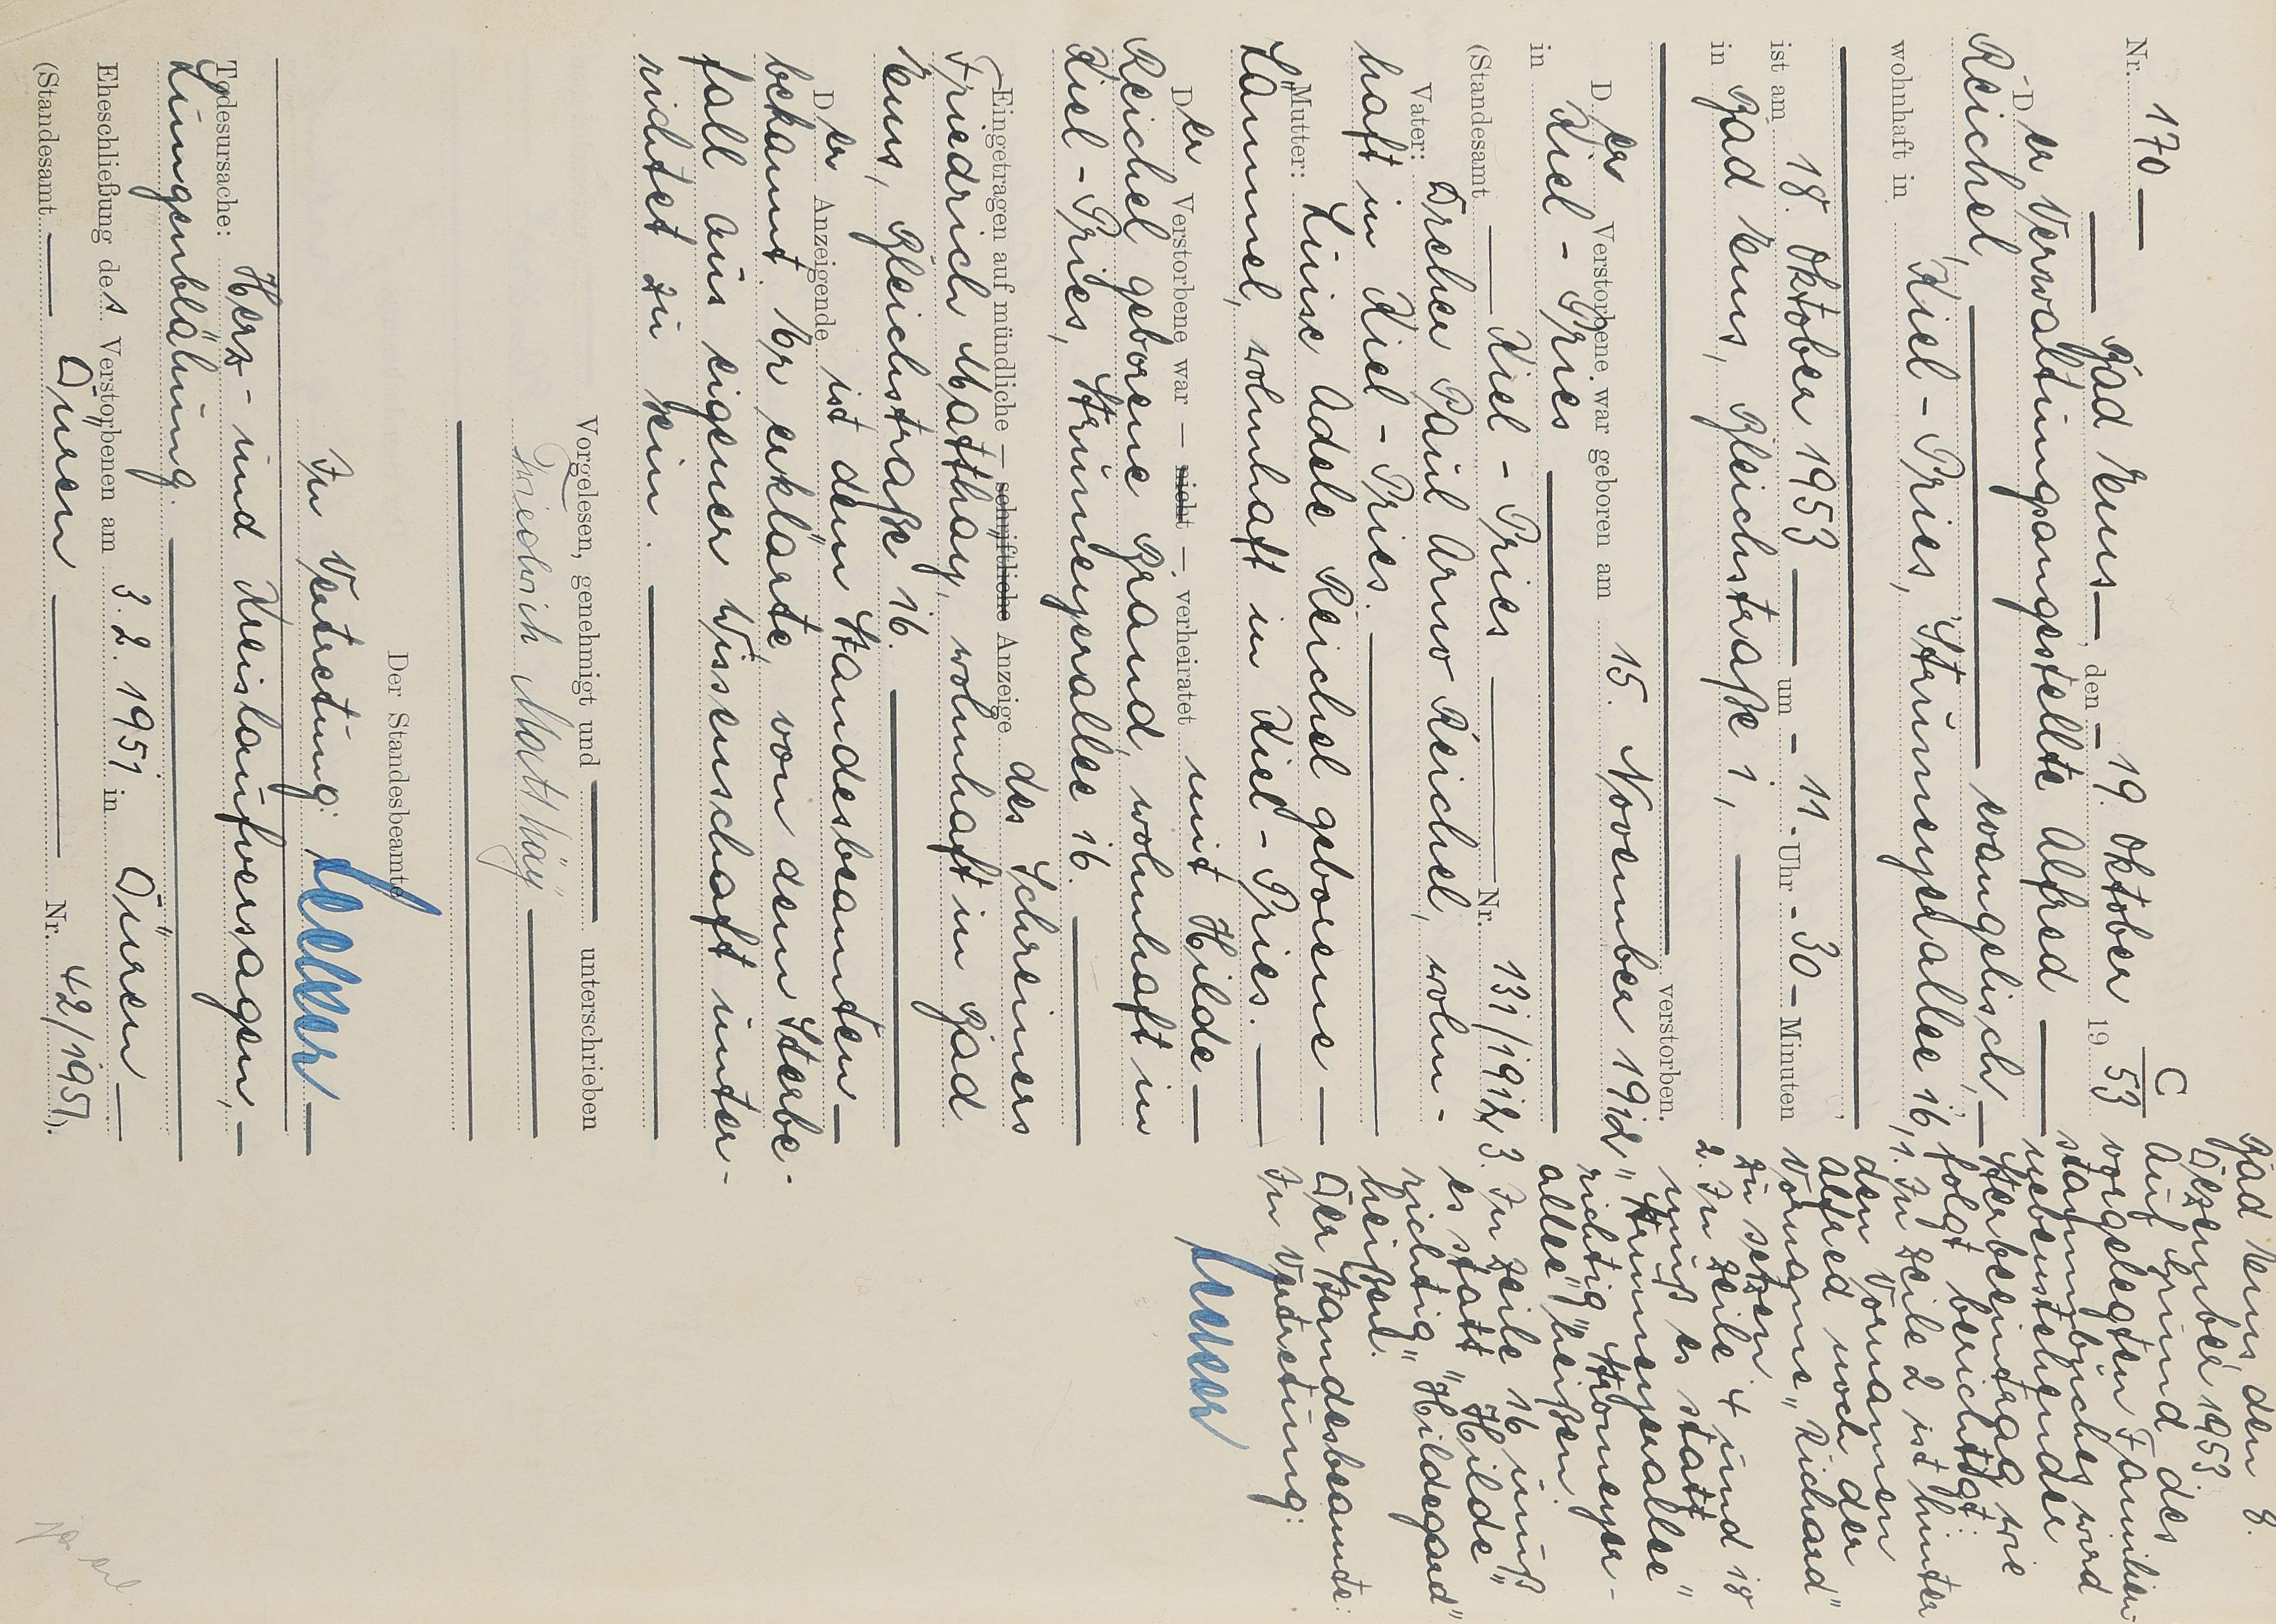 C
Nr. 170
Bad Ems, den 19. Oktober 19 53
Der Verwaltungsangestellte Alfred
Reichel, evangelisch,
wohnhaft in Kiel-Pries, Strumeyerallee 16,
ist am 18. Oktober 1953 um - 11 - Uhr - 30 - Minuten
in Bad Ems, Bleichstraße 1,
verstorben.
Der Verstorbene war geboren am 15. November 1912
in Kiel-Pries
(Standesamt Kiel-Pries Nr. 131/1912)
Vater: Dreher Paul Arno Reichel, wohn-
haft in Kiel-Pries.
Mutter: Luise Adele Reichel geborene
Lämmel, wohnhaft in Kiel-Pries.
Der Verstorbene war — nicht — verheiratet mit Hilde
Reichel geborene Brand, wohnhaft in
Kiel-Pries, Strumeyerallee 16.
Eingetragen auf mündliche — schriftliche Anzeige des Schreiners
Friedrich Matthäy, wohnhaft in Bad
Ems, Bleichstraße 16.
Der Anzeigende ist dem Standesbeamten
bekannt. Er erklärte, von dem Sterbe-
fall aus eigener Wissenschaft unter-
richtet zu sein.
Vorgelesen, genehmigt und unterschrieben
Friedrich Matthäy
Der Standesbeamte
In Vertretung:
Todesursache: Herz- und Kreislaufversagen,
Lungenblähung.
Eheschließung des Verstorbenen am 3.2.1951 in Düren
(Standesamt Düren Nr. 42/1951).
Bad Ems, den 8.
Dezember 1953
Auf Grund des
vorgelegten Familien-
stammbuches wird
nebenstehender
Sterbeeintrag wie
folgt berichtigt:
1. In Zeile 2 ist hinter
dem Vornamen
Alfred noch der
Vorname "Richard"
zu setzen
2. In Zeile 4 und 18
muß es statt
"Strumeyerallee"
richtig "Stromeyer-
allee" heißen.
3. In Zeile 16 muß
es statt "Hilde"
richtig "Hildegard"
heißen.
Der Standesbeamte:
In Vertretung: